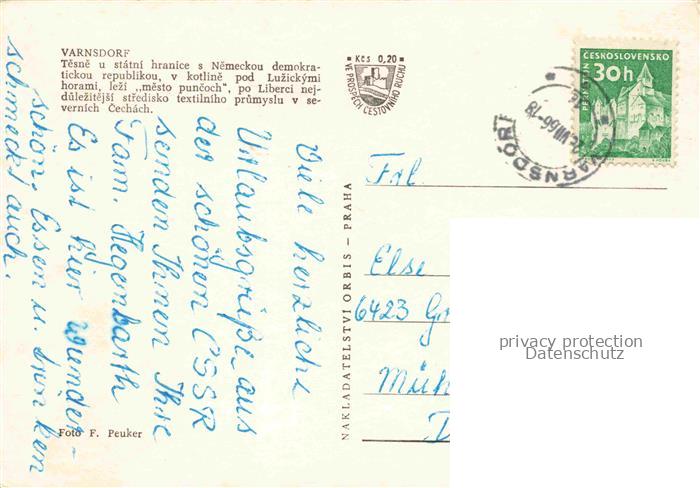 VARNSDORF
Těsně u státní hranice s Německou demokra-
tickou republikou, v kotlině pod Lužickými
horami, leží „město punčoch", po Liberci nej-
důležitější středisko textilního průmyslu v se-
verních Čechách.
Kčs 0,20
VE PROSPĚCH CESTOVNÍHO RUCHU
ČESKOSLOVENSKO
30h
PERNŠTEJN
VARNSDORF
Viele herzliche
Urlaubsgrüße aus
der schönen ČSSR
senden Ihnen Ihre
Fam. Hegenbarth
Es ist hier wunder-
schön. Essen u. trinken
schmeckt auch.
NAKLADATELSTVÍ ORBIS — PRAHA
Frl.
Else
6423 Gr
Müh
privacy protection
Datenschutz
Foto F. Peuker